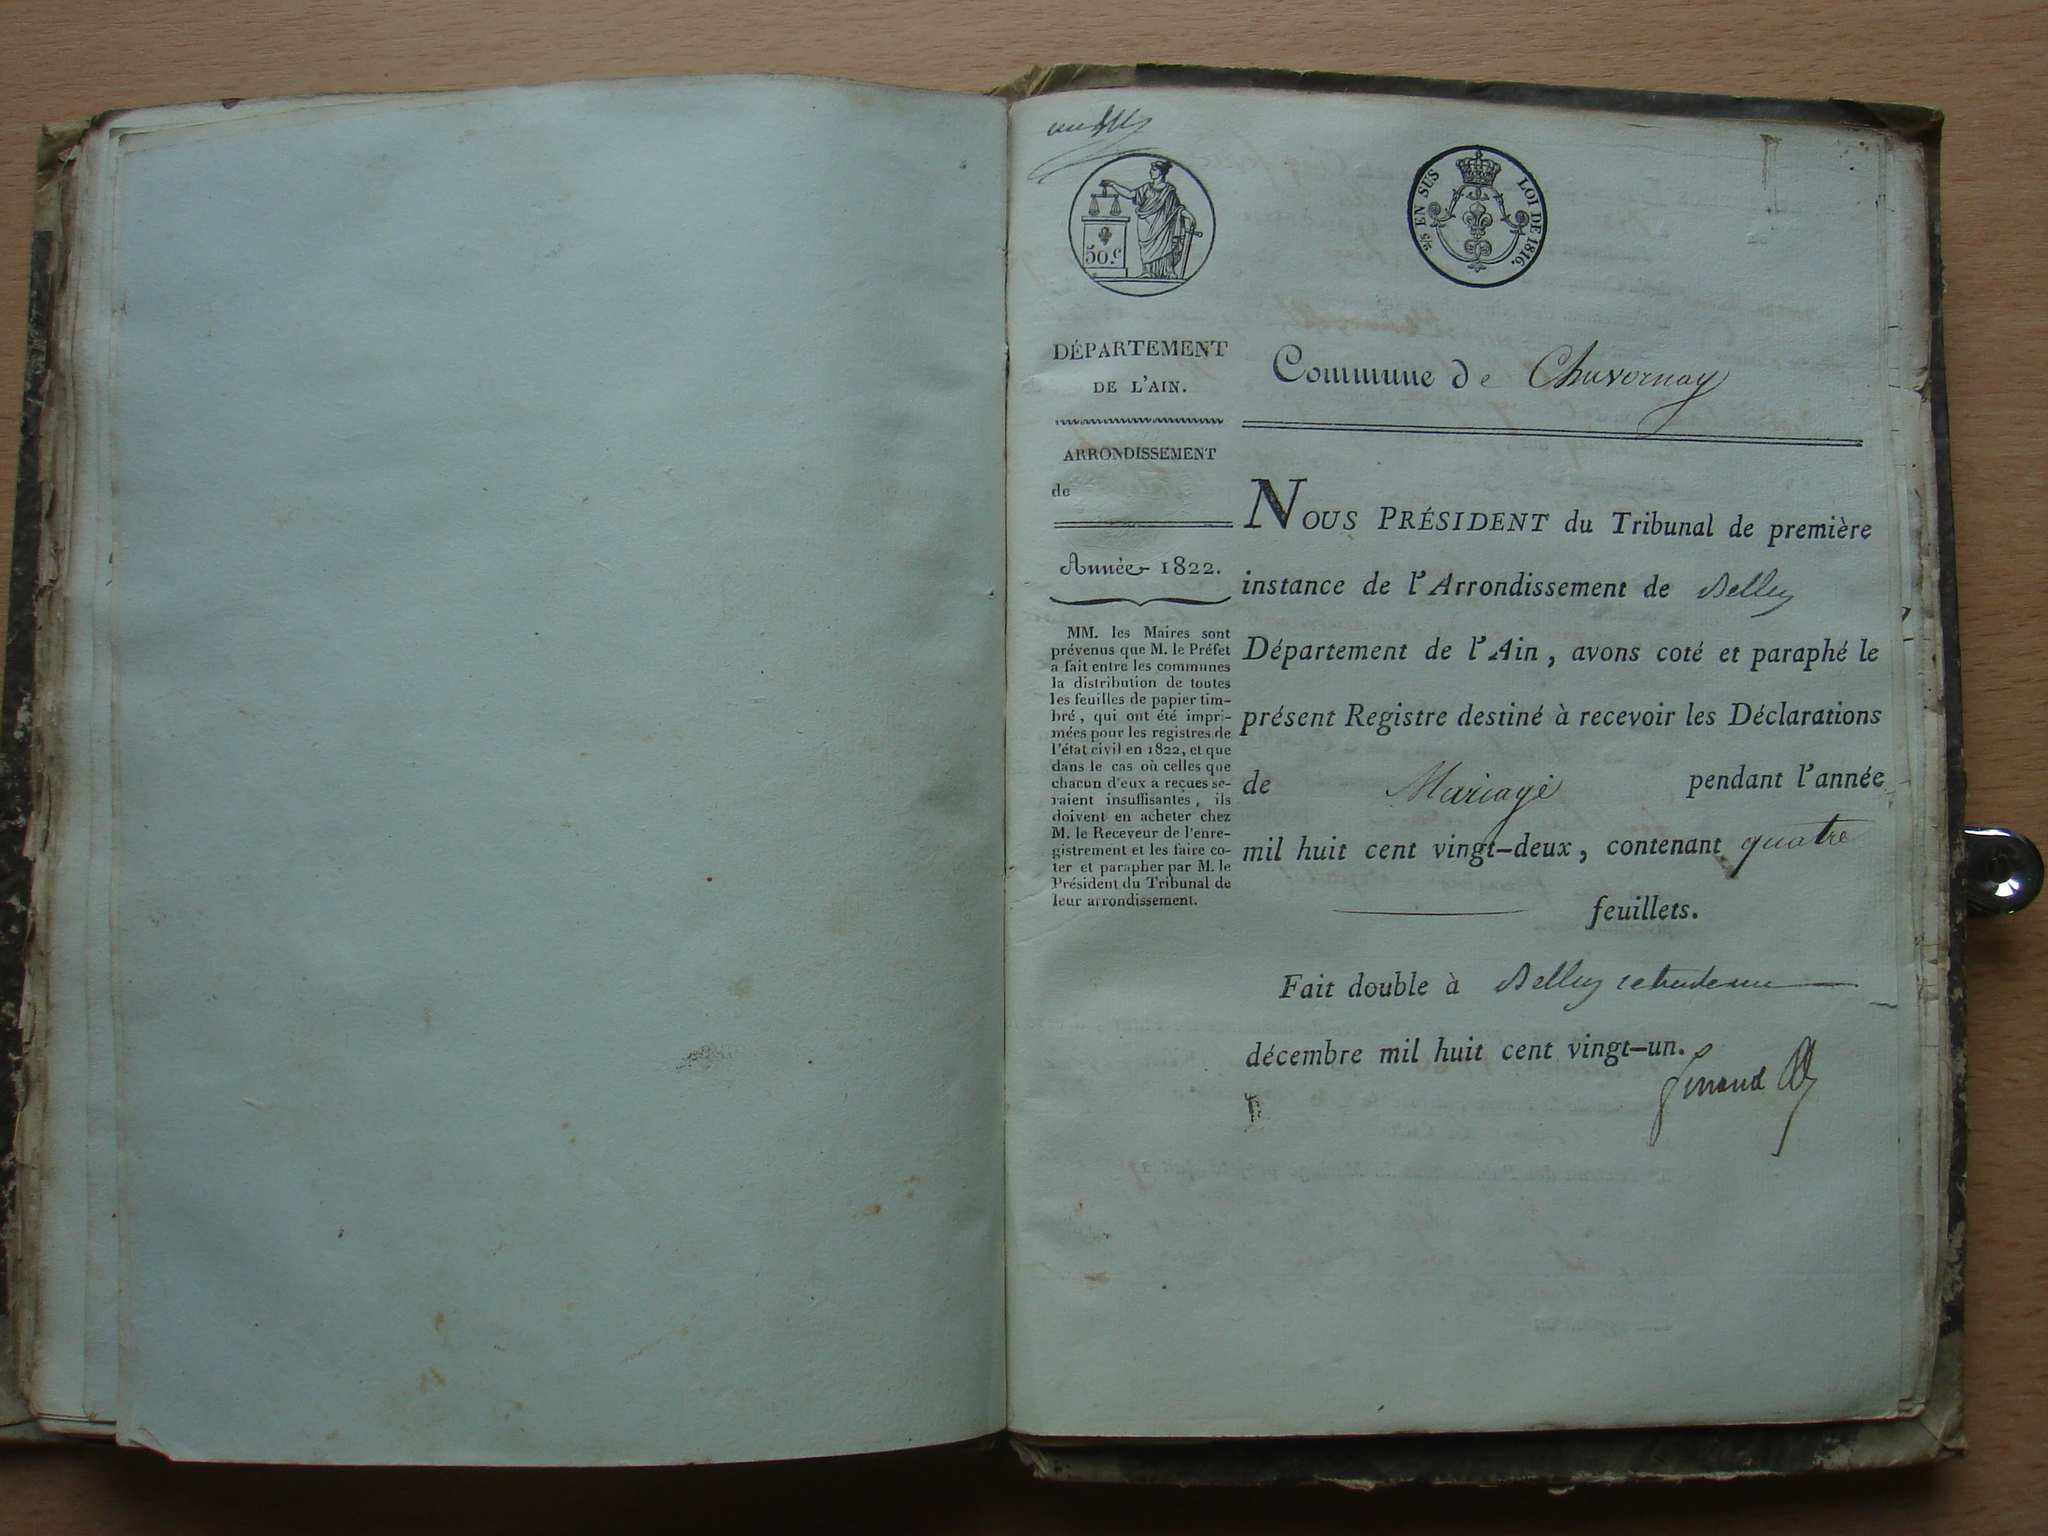 50.c
2/5 EN SUS LOI DE 1816.
DÉPARTEMENT
DE L'AIN.
ARRONDISSEMENT
de
Année 1822.
MM. les Maires sont
prévenus que M. le Préfet
a fait entre les communes
la distribution de toutes
les feuilles de papier tim-
bré, qui ont été impri-
mées pour les registres de
l'état civil en 1822, et que
dans le cas où celles que
chacun d'eux a reçues se-
raient insuffisantes, ils
doivent en acheter chez
M. le Receveur de l'enre-
gistrement et les faire co-
ter et parapher par M. le
Président du Tribunal de
leur arrondissement.
Commune de Chavornay
NOUS PRÉSIDENT du Tribunal de première
instance de l'Arrondissement de Belley
Département de l'Ain, avons coté et paraphé le
présent Registre destiné à recevoir les Déclarations
de Mariage pendant l'année
mil huit cent vingt-deux, contenant quatre
feuillets.
Fait double à Belley
décembre mil huit cent vingt-un.